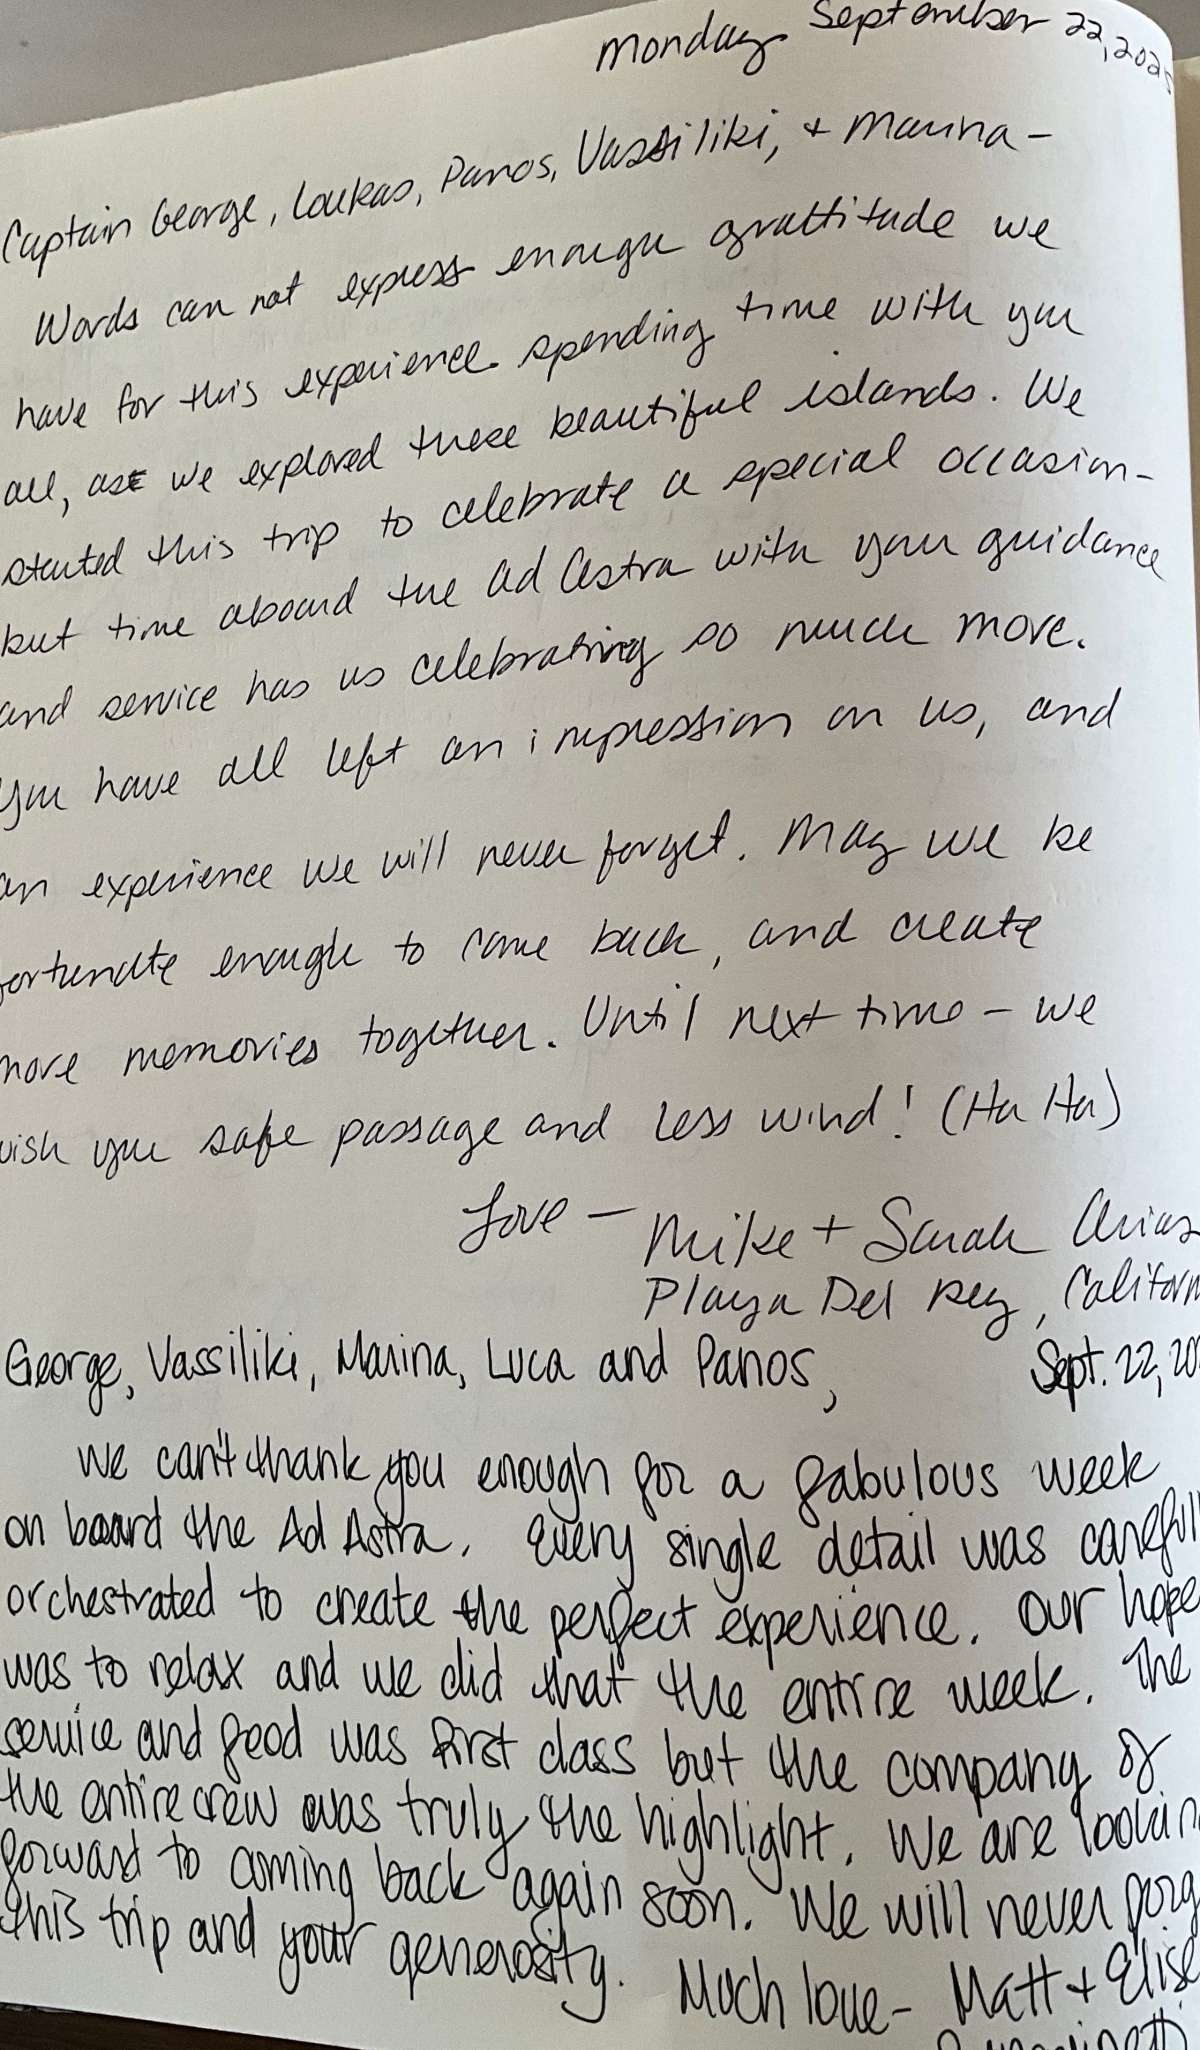 Monday September 22, 2025
Captain George, Loukas, Panos, Vassiliki, + Marina -
Words can not express enough grattitude we
have for this experience spending time with you
all, as we explored these beautiful islands. We
started this trip to celebrate a special occasion -
but time aboard the Ad Astra with your guidance
and service has us celebrating so much more.
You have all left an impression on us, and
an experience we will never forget. May we be
fortunate enough to come back, and create
more memories together. Until next time - we
wish you safe passage and less wind! (Ha Ha)
Love - Mike + Sarah Arias
Playa Del Rey, Californ
George, Vassiliki, Marina, Luca and Panos,
Sept. 22, 20
We can't thank you enough for a fabulous week
on board the Ad Astra. Every single detail was carefull
orchestrated to create the perfect experience. Our hope
was to relax and we did that the entire week. The
service and food was first class but the company of
the entire crew was truly the highlight. We are lookin
forward to coming back again soon. We will never forg
this trip and your generosity. Much love - Matt + Elise